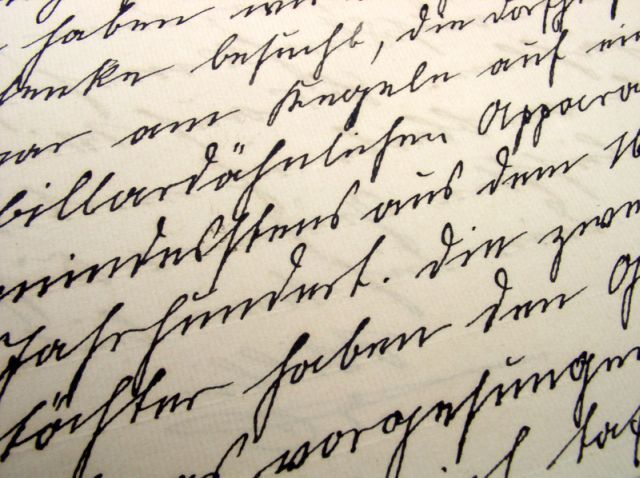 haben
enke besucht, die Dorfju
war am Kegeln auf ein
billardähnlichen Appara
mindestens aus dem 16
Jahrhundert. Die zwe
töchter haben den G
vorgesungen